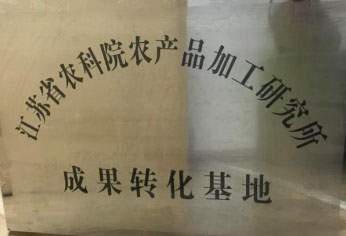 江苏省农科院农产品加工研究所
成果转化基地